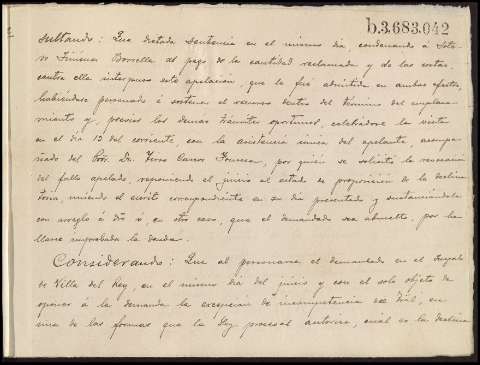 b.3.683.042
sultando: Que dictada sentencia en el mismo día, condenando á Sota-
no Jiménez Borrella al pago de la cantidad reclamada y de las costas,
contra ella interpuso este apelación, que le fué admitida en ambos efectos,
habiéndose personado á sostener el recurso dentro del término del emplaza-
miento y, previos los demas trámites oportunos, celebrádose la vista
en el día 13 del corriente, con la asistencia única del apelante, acompa-
ñado del Pror. Dn. por quien se solicitó la revocación
del fallo apelado, reponiendo el juicio al estado de proposición de la declina-
toria, uniendo el escrito correspondiente en su día presentado y sustanciándola
con arreglo á dro ó, en otro caso, que el demandado sea absuelto, por ha-
llarse improbada la deuda.
Considerando: Que al personarse el demandado en el Juzgado
de Villa del Rey, en el mismo día del juicio y con el solo objeto de
oponer á la demanda la excepción de incompetencia de en
una de las formas que la Ley procesal autoriza, cual es la declina